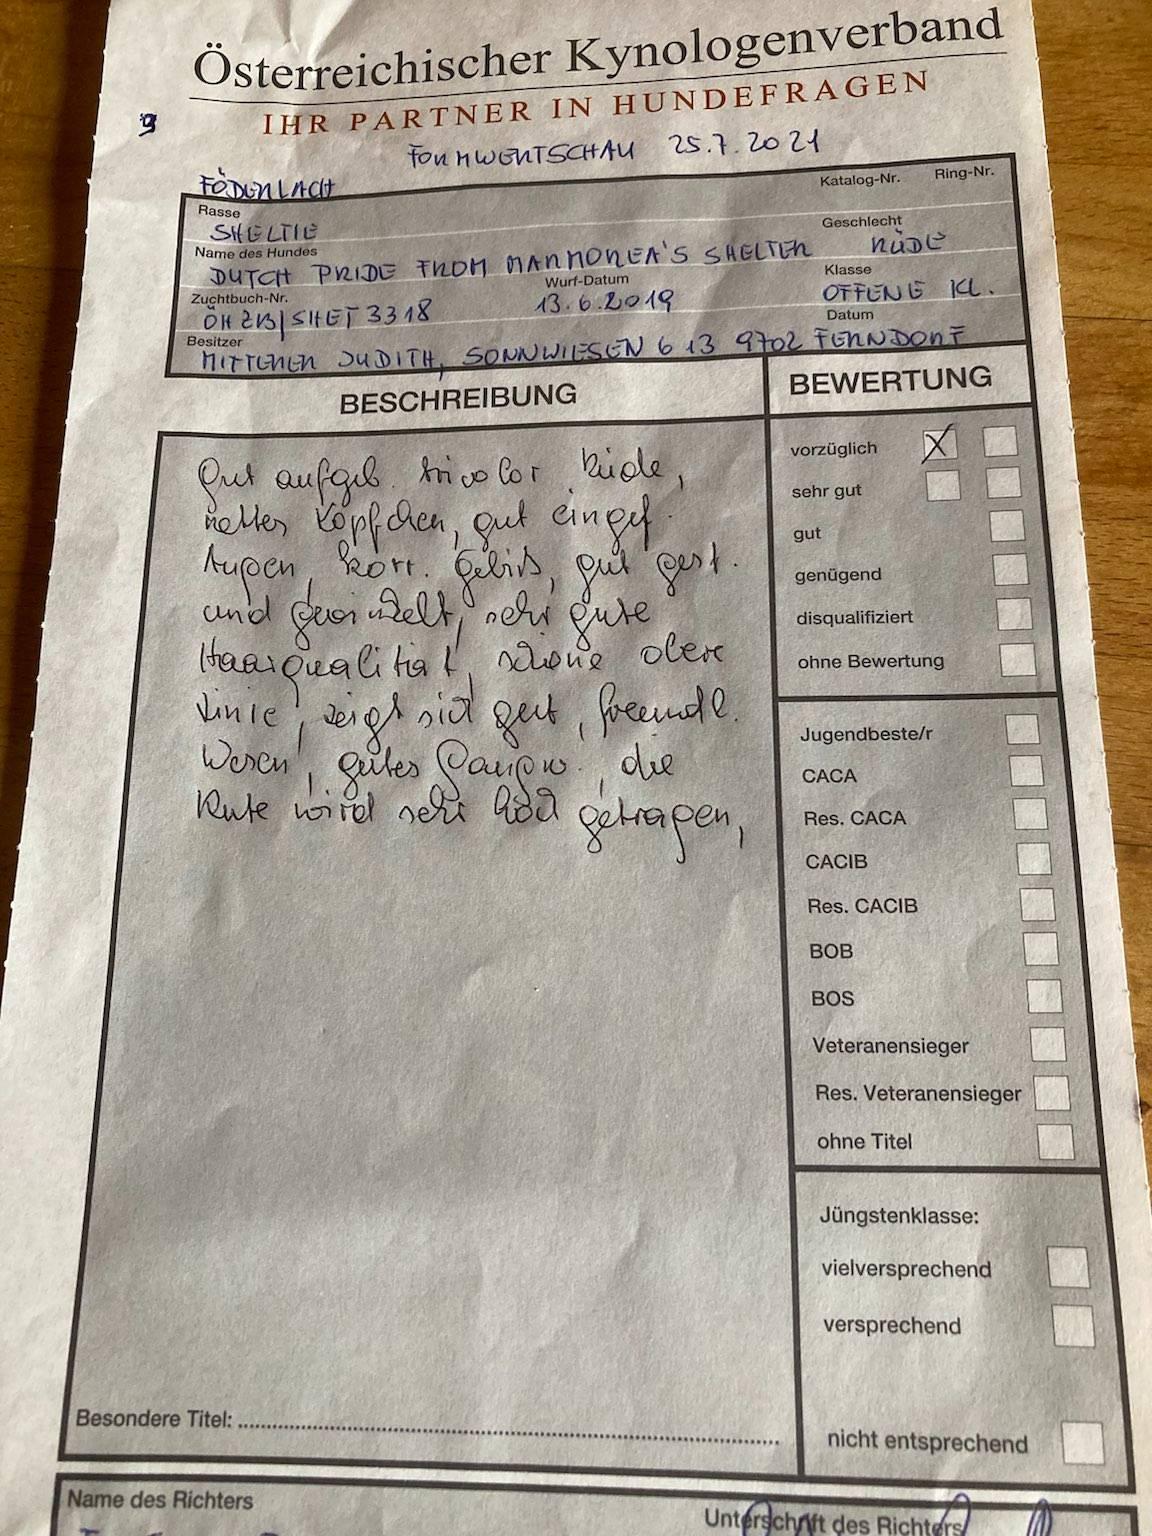 Österreichischer Kynologenverband
IHR PARTNER IN HUNDEFRAGEN
9
FORMWERTSCHAU 25.7.2021
FÖDERLACH
Katalog-Nr. Ring-Nr.
Rasse
SHELTIE
Geschlecht
RÜDE
Name des Hundes
DUTCH PRIDE FROM MARMOREA'S SHELTER
Klasse
OFFENE KL.
Zuchtbuch-Nr.
ÖHZB/SHET 3318
Wurf-Datum
13.6.2019
Datum
Besitzer
MITTERER JUDITH, SONNWIESEN 613 9702 FERNDORF
BESCHREIBUNG
Gut aufgeb. tricolor Rüde,
nettes Köpfchen, gut eingef.
Augen, korr. Gebiß, gut gest.
und gewinkelt, sehr gute
Haarqualität, schöne obere
Linie, zeigt sich gut, freundl.
Wesen, gutes Gangw., die
Rute wird sehr hoch getragen,
Besondere Titel:
BEWERTUNG
vorzüglich X
sehr gut
gut
genügend
disqualifiziert
ohne Bewertung
Jugendbeste/r
CACA
Res. CACA
CACIB
Res. CACIB
BOB
BOS
Veteranensieger
Res. Veteranensieger
ohne Titel
Jüngstenklasse:
vielversprechend
versprechend
nicht entsprechend
Name des Richters
Unterschrift des Richters